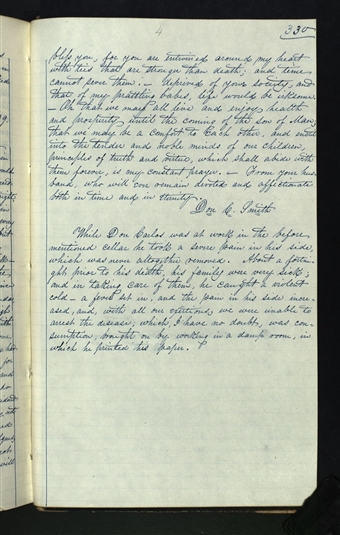 4
330
bless you, for you are entwined around my heart
with ties that are stronger than death; and time
cannot sever them. — Deprived of your society, and
that of my prattling babes, life would be irksome.
— Oh that we may all live and enjoy health
and prosperity until the coming of the son of Man,
that we may be a comfort to each other, and instil
into the tender and noble minds of our children,
principles of truth and virtue, which shall abide with
them forever, is my constant prayer. — From your hus-
band, who will ever remain devoted and affectionate
both in time and in eternity.
Don C. Smith
While Don Carlos was at work in the before
mentioned cellar he took a severe pain in his side,
which was never altogether removed. About a fort-
night prior to his death, his family were very sick;
and in taking care of them, he caught a violent
cold — a fever set in, and the pain in his side incre-
ased, and, with all our exertions, we were unable to
arrest the disease, which, I have no doubt, was con-
sumption, brought on by working in a damp room, in
which he printed his paper.